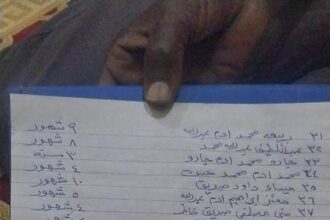 ٣١ ربيعه محمد ادم عبدالله ٩ شهور
٣٢ عبداللطيف عبدالله محمد ٨ شهور
٣٣ جادو محمد ادم جادو ٣ سنة
٣٤ ادم محمد ٤ شهور
٣٥ ميساء داود صديق ١٠ شهور
٣٦ معتز ابراهيم ادم عبدالله ٥ شهور
٣٧ مصطفي صديق خاطر ٤ شهور